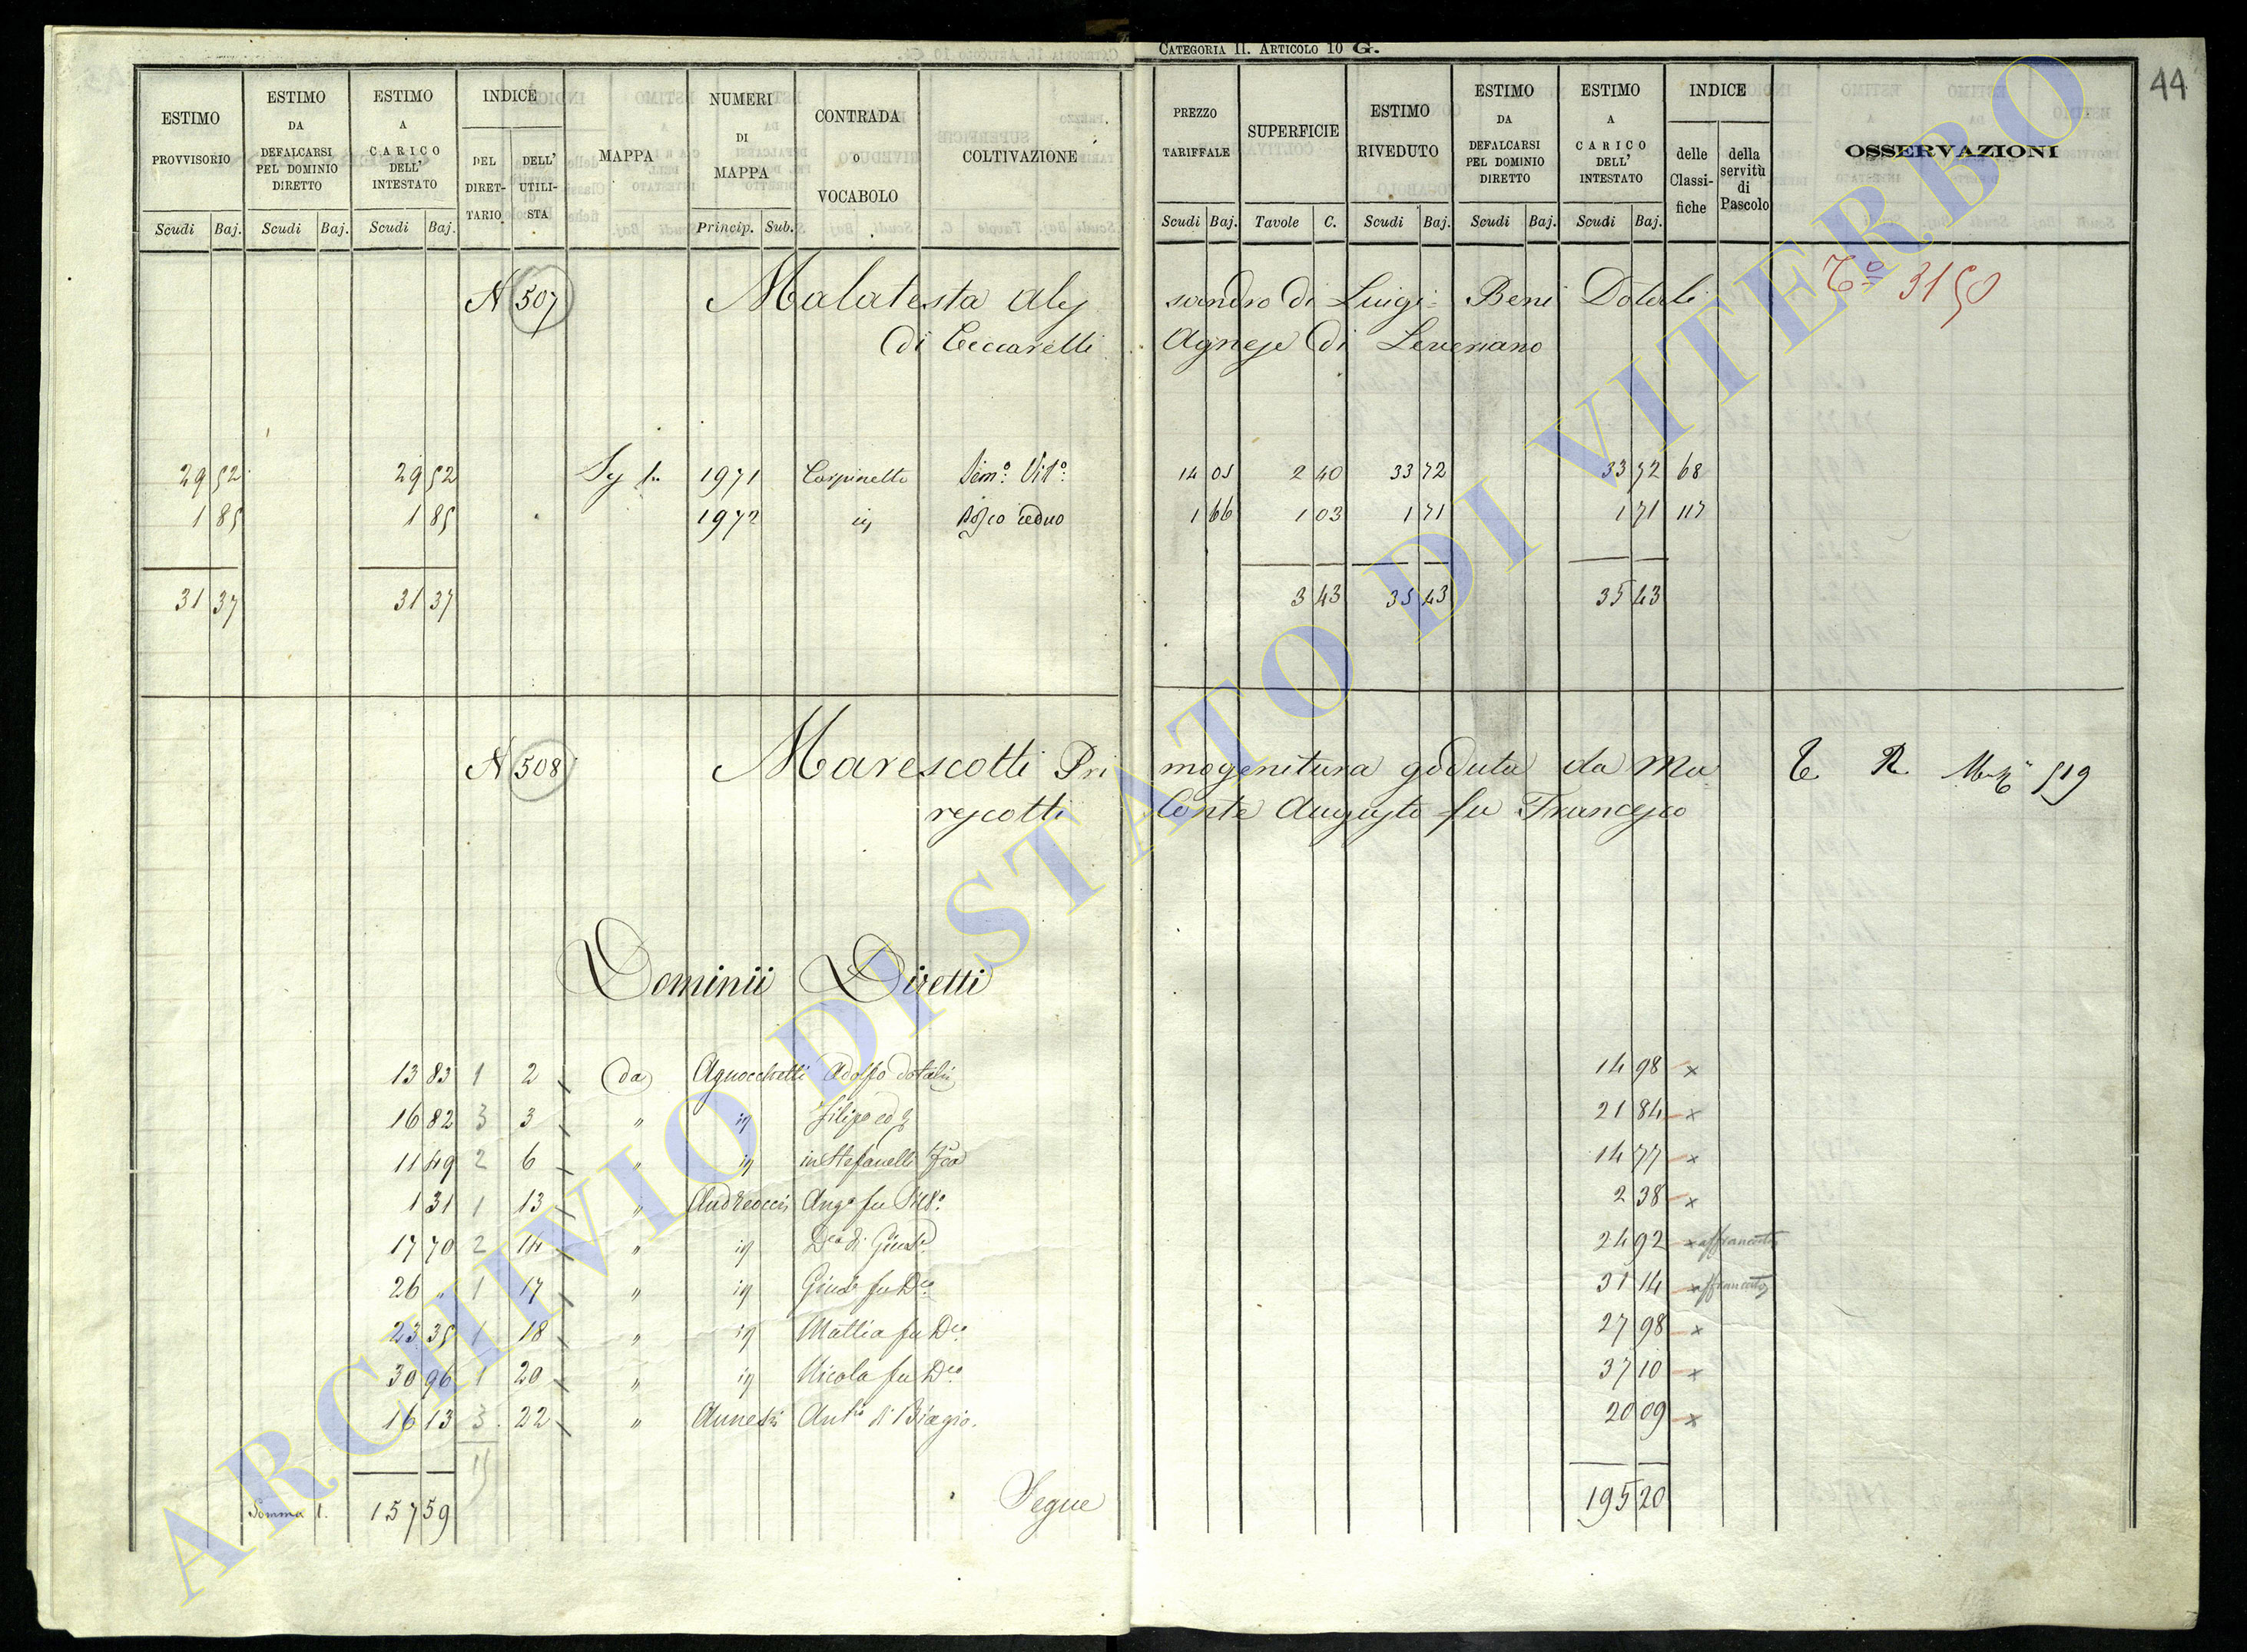 CATEGORIA II. ARTICOLO 10 G.
44
ESTIMO PROVVISORIO Scudi Baj.
ESTIMO DA DEFALCARSI PEL DOMINIO DIRETTO Scudi Baj.
ESTIMO A CARICO DELL' INTESTATO Scudi Baj.
INDICE DEL DIRETTARIO DELL' UTILISTA
MAPPA
NUMERI DI MAPPA Princip. Sub.
CONTRADA O VOCABOLO
COLTIVAZIONE
PREZZO TARIFFALE Scudi Baj.
SUPERFICIE Tavole C.
ESTIMO RIVEDUTO Scudi Baj.
ESTIMO DA DEFALCARSI PEL DOMINIO DIRETTO Scudi Baj.
ESTIMO A CARICO DELL' INTESTATO Scudi Baj.
INDICE delle Classifiche della servitù di Pascolo
OSSERVAZIONI
N 507 Malatesta Alessandro di Luigi = Beni Dotali 3150
di Ceccarelli Agnese di Severiano
29 52 29 52 1971 Carpinetto Sem.o Vit.o 14 05 2 40 33 72 33 72 68
1 85 1 85 1972 id Bosco ceduo 1 66 1 03 1 71 1 71 117
31 37 31 37 3 43 35 43 35 43
N 508 Marescotti Primogenitura goduta da Ma= 519
rescotti Conte Augusto fu Francesco
Dominii Diretti
13 83 1 2 da Agnocchetti Adolfo dotali 14 98 x
16 82 3 3 " id Filipo ed 21 84 x
11 49 2 6 " id in Stefanelli 14 77 x
1 31 1 13 " Andreoccii Ang.o fu 2 38 x
17 70 2 14 " id D.co di Giuse 24 92 x affrancato
26 " 1 17 " id Giuse fu D.co 31 14 x affrancato
23 35 1 18 " id Mattia fu D.co 27 98 x
30 96 1 20 " id Nicola fu D.co 37 10 x
16 13 3 22 " Annesi Ant.o di Biagio. 20 09 x
15
Somma 1. 157 59 Segue 195 20
ARCHIVIO DI STATO DI VITERBO